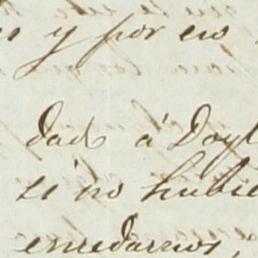 y por eso
dado á Doyl
si no hubie
enredarnos,